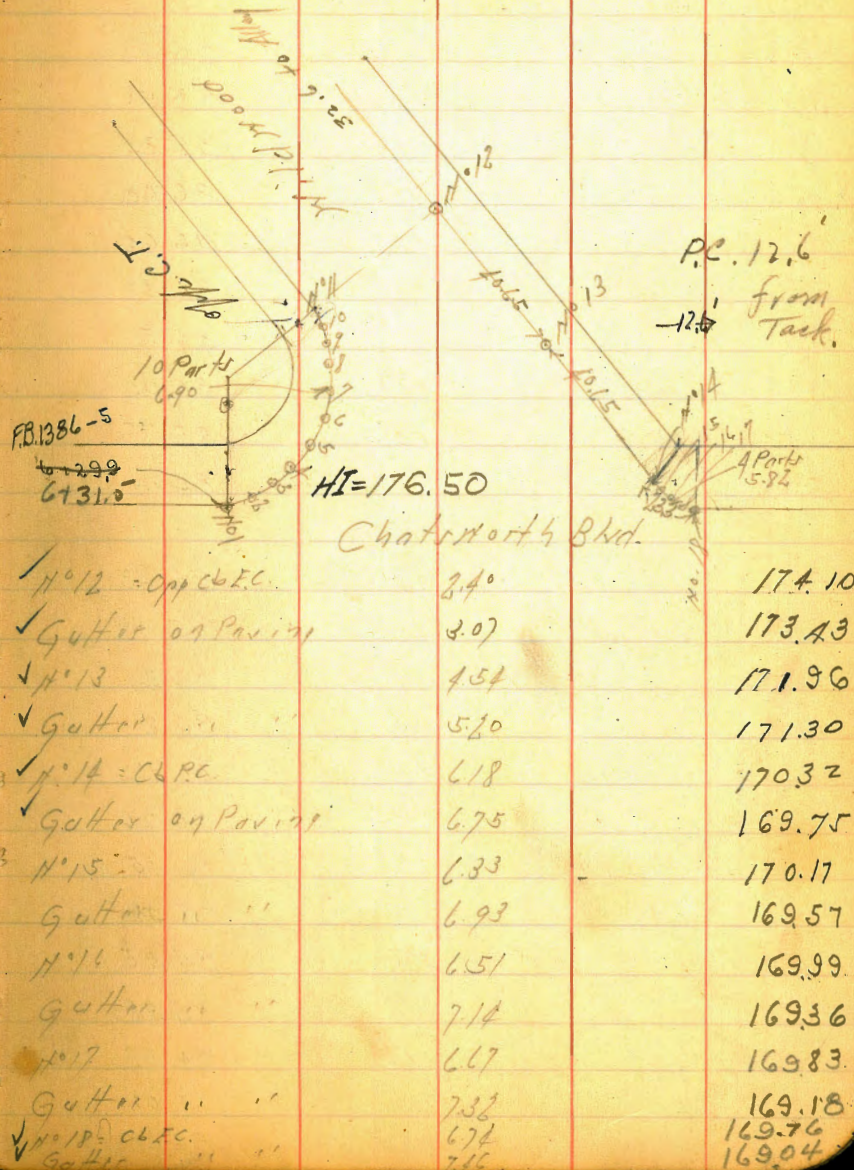 32.6 to Alley
Wildwood
N° 12
P.C. 12.6'
from
Tack.
-12.6'
40.65
N° 13
40.65
N° 11
10
9
8
7
6
5
10 Parts
6.90
F.B.1386-5
6+29.9
6+31.5
No1
N° 14
15
16
17
4 Parts
5.82
No. 18
HI=176.50
Chatsworth Blvd.
✓ N° 12 = Opp Cb E.C. 2.40 174.10
✓ Gutter on Paving 3.07 173.43
✓ N° 13 4.54 171.96
✓ Gutter " " 5.20 171.30
✓ N° 14 = Cb P.C. 6.18 170.32
✓ Gutter on Paving 6.75 169.75
N° 15 6.33 170.17
Gutter " " 6.93 169.57
N° 16 6.51 169.99
Gutter " " 7.14 169.36
N° 17 6.67 169.83
Gutter " " 7.32 169.18
✓ N° 18 = Cb E.C. 6.74 169.76
✓ Gutter 7.46 169.04